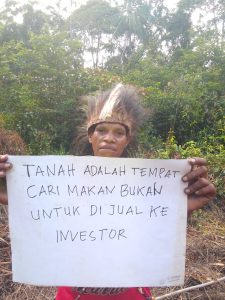 TANAH ADALAH TEMPAT
CARI MAKAN BUKAN
UNTUK DI JUAL KE
INVESTOR